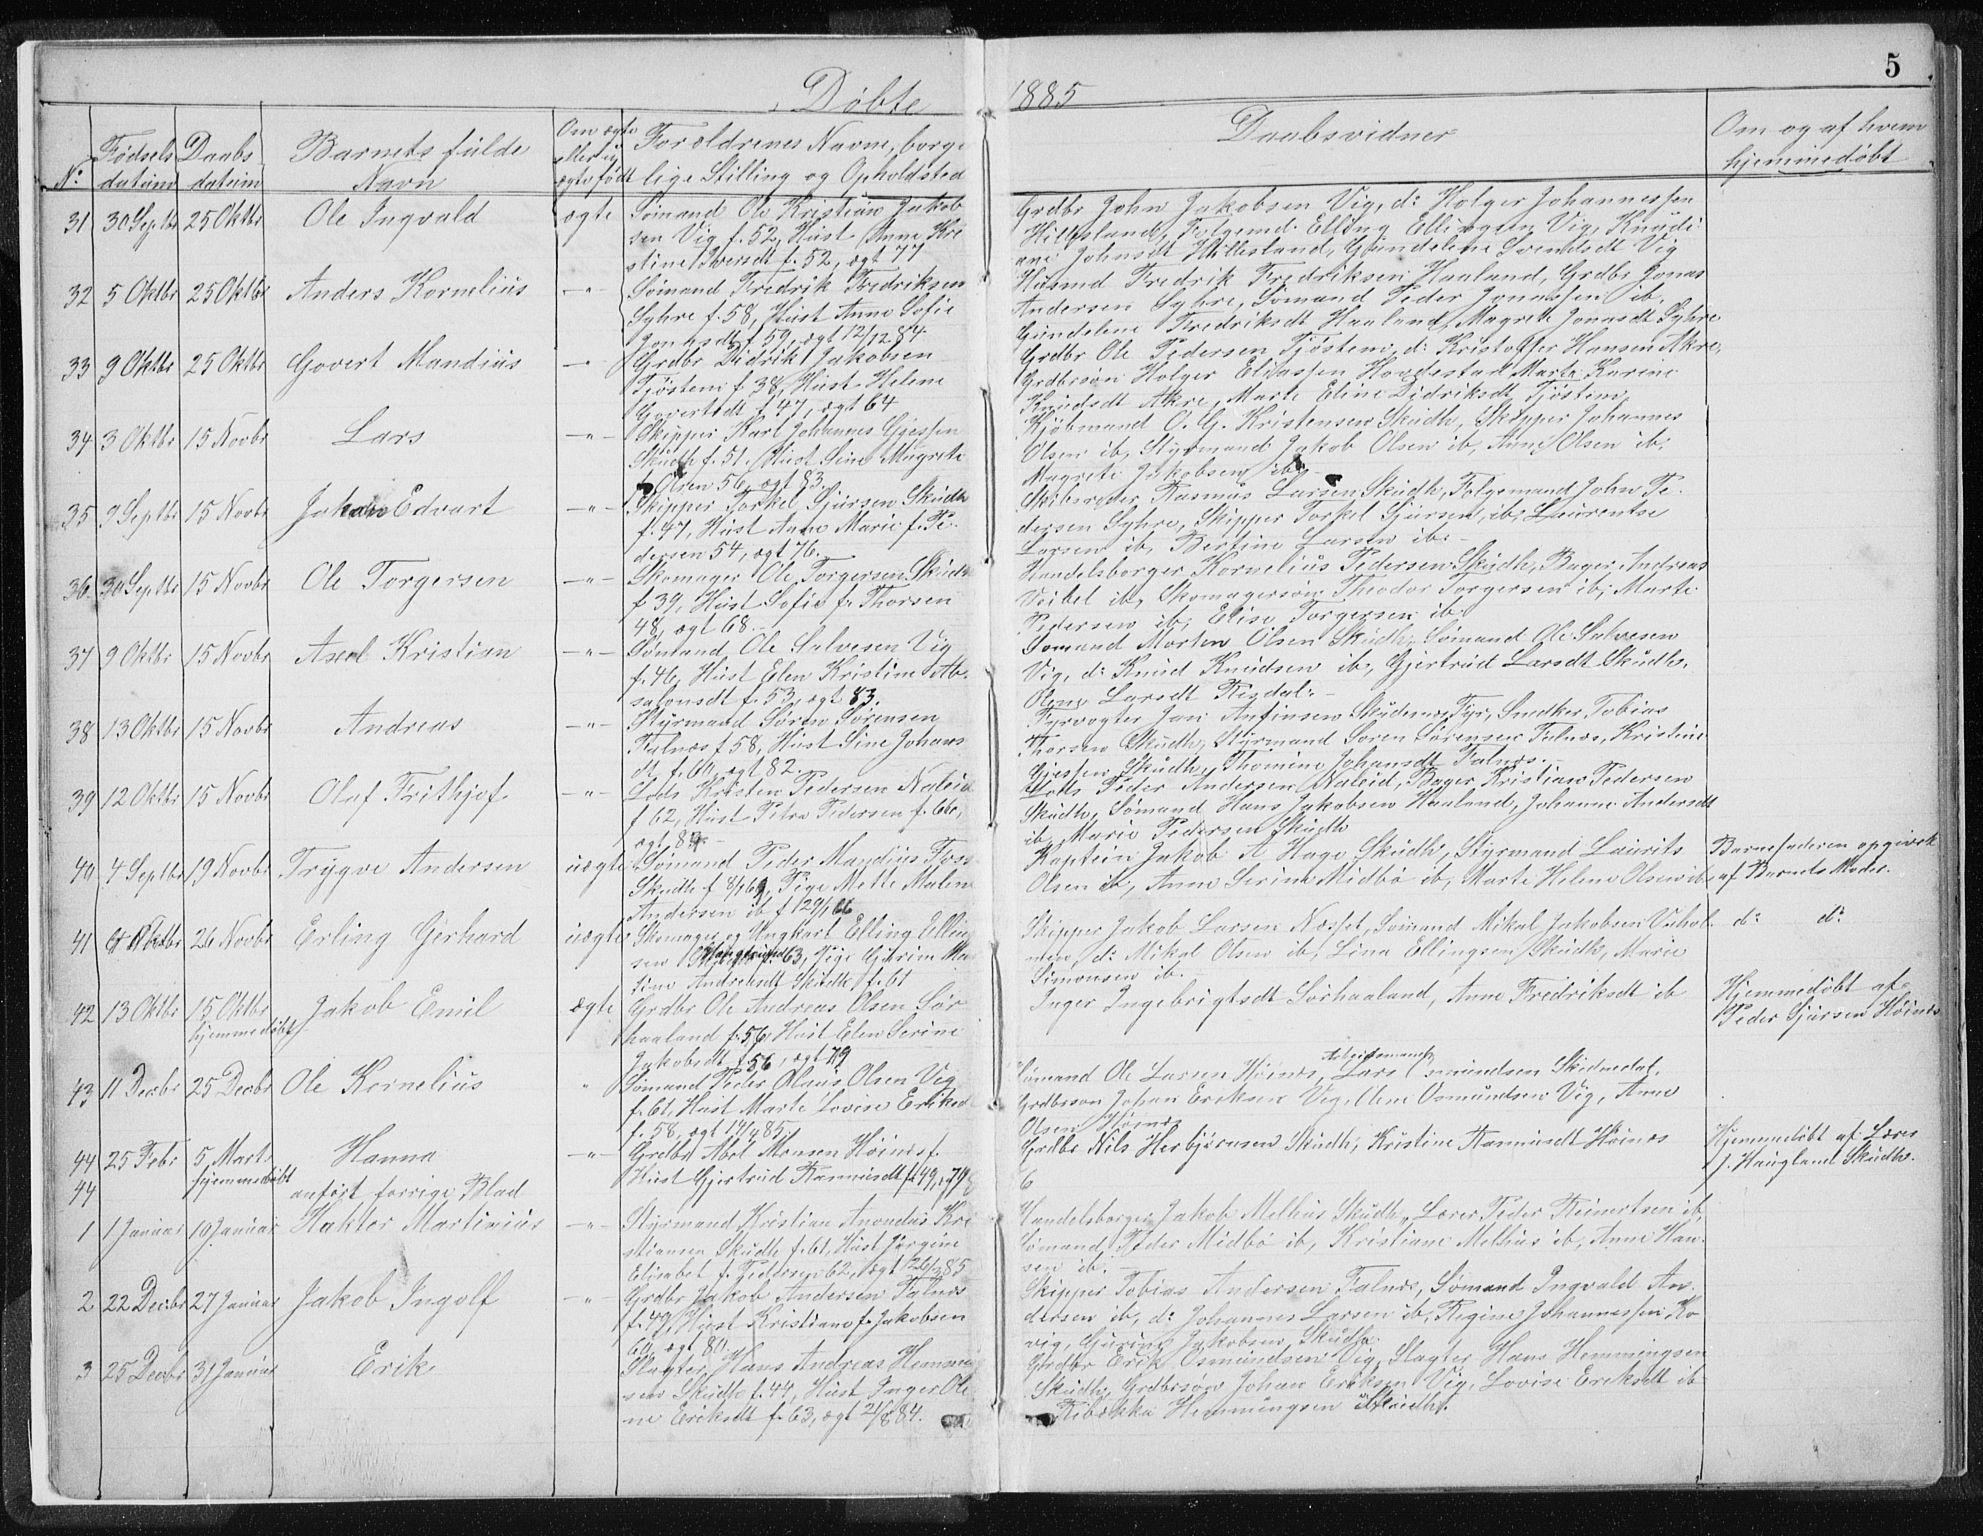 5
Døbte 1885
No Fødsels datum Daabs datum Barnets fulde Navn Om ægte eller uægte født Forældrenes Navne, borgerlige Stilling og Opholdsted Daabsvidner Om og af hvem hjemmedøbt
31 30 Septbr 25 Oktbr Ole Ingvald ægte Sømand Ole Kristian Jakob
sen Vig f. 52, Hust Anne Kri
stine Iversdt f. 52, ægt 77
Grdbr John Jakobsen Vig, do Holger Johannessen
Hillesland, Følgemd. Elling Ellingsen Vig, Knudi
ane Johnsdt Hillesland, Gundeline Svendsdt Vig
32 5 Oktbr 25 Oktbr Anders Kornelius -"- Sømand Fredrik Fredriksen
Syhre f. 58, Hust Anne Sofie
Jonasdt f. 59, ægt 12/12 84
Husmd Fredrik Fredriksen Haaland, Grdbr Jonas
Andersen Syhre, Sømand Peder Jonassen ib,
Gundeline Fredriksdt Haaland, Magrete Jonasdt Syhre
33 9 Oktbr 25 Oktbr Govert Mandius -"- Grdbr Didrik Jakobsen
Tjøstem f. 38, Hust Helene
Govertsdt f. 47, ægt 64
Grdbr Ole Pedersen Tjøstem, do Kristoffer Hansen Akre,
Grdbrsøn Holger Eliassen Hovdestad, Marta Karine
Knudsdt Akre, Marte Eline Didriksdt Tjøstem
34 3 Oktbr 15 Novbr Lars -"- Skipper Karl Johannes Gjessen
Skudh f. 51. Hust Sine Magrete
f. Olsen 56, ægt 83.
Kjøbmand O. G. Kristensen Skudh, Skipper Johannes
Olsen ib, Styrmand Jakob Olsen ib, Anne Olsen ib,
Magrete Jakobsen ib.
35 9 Septbr 15 Novbr Johan Edvart -"- Skipper Torkel Sjursen Skudh
f. 47, Hust Anne Marie f. Pe-
dersen 54, ægt 76.
Skibsreder Rasmus Larsen Skudh, Følgemand John Pe-
dersen Syhre, Skipper Torkel Sjursen ib, Laurentse
Larsen ib, Bertine Larsen ib.-
36 30 Septbr 15 Novbr Ole Torgersen -"- Skomager Ole Torgersen Skudh
f 39, Hust Sofie f. Thorsen
48, ægt 68.-
Handelsborger Kornelius Pedersen Skudh, Bager Andreas
Veibel ib, Skomagersøn Theodor Torgersen ib, Marte
Pedersen ib, Elise Torgersen ib.
37 9 Oktbr 15 Novbr Axel Kristian -"- Sømand Ole Salvesen Vig
f. 46, Hust Elen Kristine Ab-
salonsdt f. 53, ægt 83.
Sømand Morten Olsen Skudh, Sømand Ole Salvesen
Vig, do Knud Knudsen ib, Gjertrud Larsdt Skudh,
Olene Larsdt
38 13 Oktbr 15 Novbr Andreas -"- Styrmand Søren Sørensen
Falnæs f 58, Hust Sine Johans
dt f. 60, ægt 82.
Fyrvogter Jan Anfinsen Skudenes Fyr, Snedker Tobias
Thorsen Skudh, Styrmand Søren Sørensen Falnæs, Kristine
Gjessen Skudh, Thomine Johansdt Falnæs.
39 12 Oktbr 15 Novbr Olaf Frithjof -"- Lods Kristen Pedersen Naleid
f 62, Hust Petra Pedersen f. 60,
ægt
Lods Peder Andersen Naleid, Bager Kristian Pedersen
Skudh, Sømand Hans Jakobsen Haaland, Johanne Andersdt
ib, Marie Pedersen Skudh
40 4 Septbr 19 Novbr Trygve Andersen uægte Sømand Peder Mandius
Skudh f Pige Mette Malene
Andersen ib f
Kaptein Jakob A Hage Skudh, Styrmand Laurits
Olsen ib, Anne Serine Midbø ib, Marte Helene Olsen ib
Barnefaderen opgivet
af Barnets Moder.
41 Oktbr 26 Novbr Erling Gerhard uægte Skomager og Ungkarl Elling Ellin
sen 63, Pige Gurine Ma
sine Andreasdt Skudh f. 61
Skipper Jakob Larsen Næsset, Sømand Mikal Jakobsen
do Mikal Olsen ib, Lina Ellingsen Skudh, Marie
Simonsen ib.-
do do
42 13 Oktbr 15 Oktbr hjemmedøbt Jakob Emil ægte Grdbr Ole Andreas Olsen Sør
haaland f. 56, Hust Elen Serine
Jakobsdt f. 56, ægt 79
Inger Ingebrigtsdt Sørhaaland, Anne Fredriksdt ib
Hjemmedøbt af
Peder Sjursen Høines
43 11 Decbr 25 Decbr Ole Kornelius " Sømand Peder Olaus Olsen Vig
f. 61, Hust Marte Lovise Eriksd
f. 58, ægt 19/4 85.
Sømand Ole Larsen Høines, Arbeidsmand Lars Osmundsen
Grdbrsøn Johan Eriksen Vig, Olene Osmundsen Vig, Anne
Olsen Høines
44 25 Febr 5 Marts hjemmedøbt Hanna -"- Grdbr Abel Monsen Høines f.
Hust Gjertrud Rasmusdt f. 49, 79
Grdbr Nils Herbjørnsen Skudh, Kristine Rasmusdt Høines
Hjemmedøbt af Lærer
J. Haugland Skudh.
44 anført forrige Blad
6
1 1 Januar 10 Januar Haktor Martinius -"- Styrmand Kristian Anondus Kri
stiansen Skudh f. 61, Hust Jørgine
Elisabet f. Pedersen 62, ægt 85
Handelsborger Jakob Melhus Skudh, Lærer Peder Reinertsen ib,
Sømand Peder Midbø ib, Kristiane Melhus ib, Anne Han-
sen ib.-
2 22 Decbr 27 Januar Jakob Ingolf -"- Grdbr Jakob Andersen Falnæs
f. 49, Hust Kristiane f. Jakobsen
60, ægt 80.
Skipper Tobias Andersen Falnæs, Sømand Ingvald An-
dersen ib, do Johannes Larsen ib, Regine Johannessen Ko
vig, Gurine Jakobsen, Skudh.
3 25 Decbr 31 Januar Erik Slagter Hans Andreas Hemmin
sen Skudh f. 44, Hust Inger Ole
ne Eriksdt f. 63, ægt 21/8 84.
Grdbr Erik Osmundsen Vig, Slagter Hans Hemmingsen
Skudh, Grdbrsøn Johan Eriksen Vig, Lovise Eriksdt ib
Ribekka Hemmingsen Skudh.